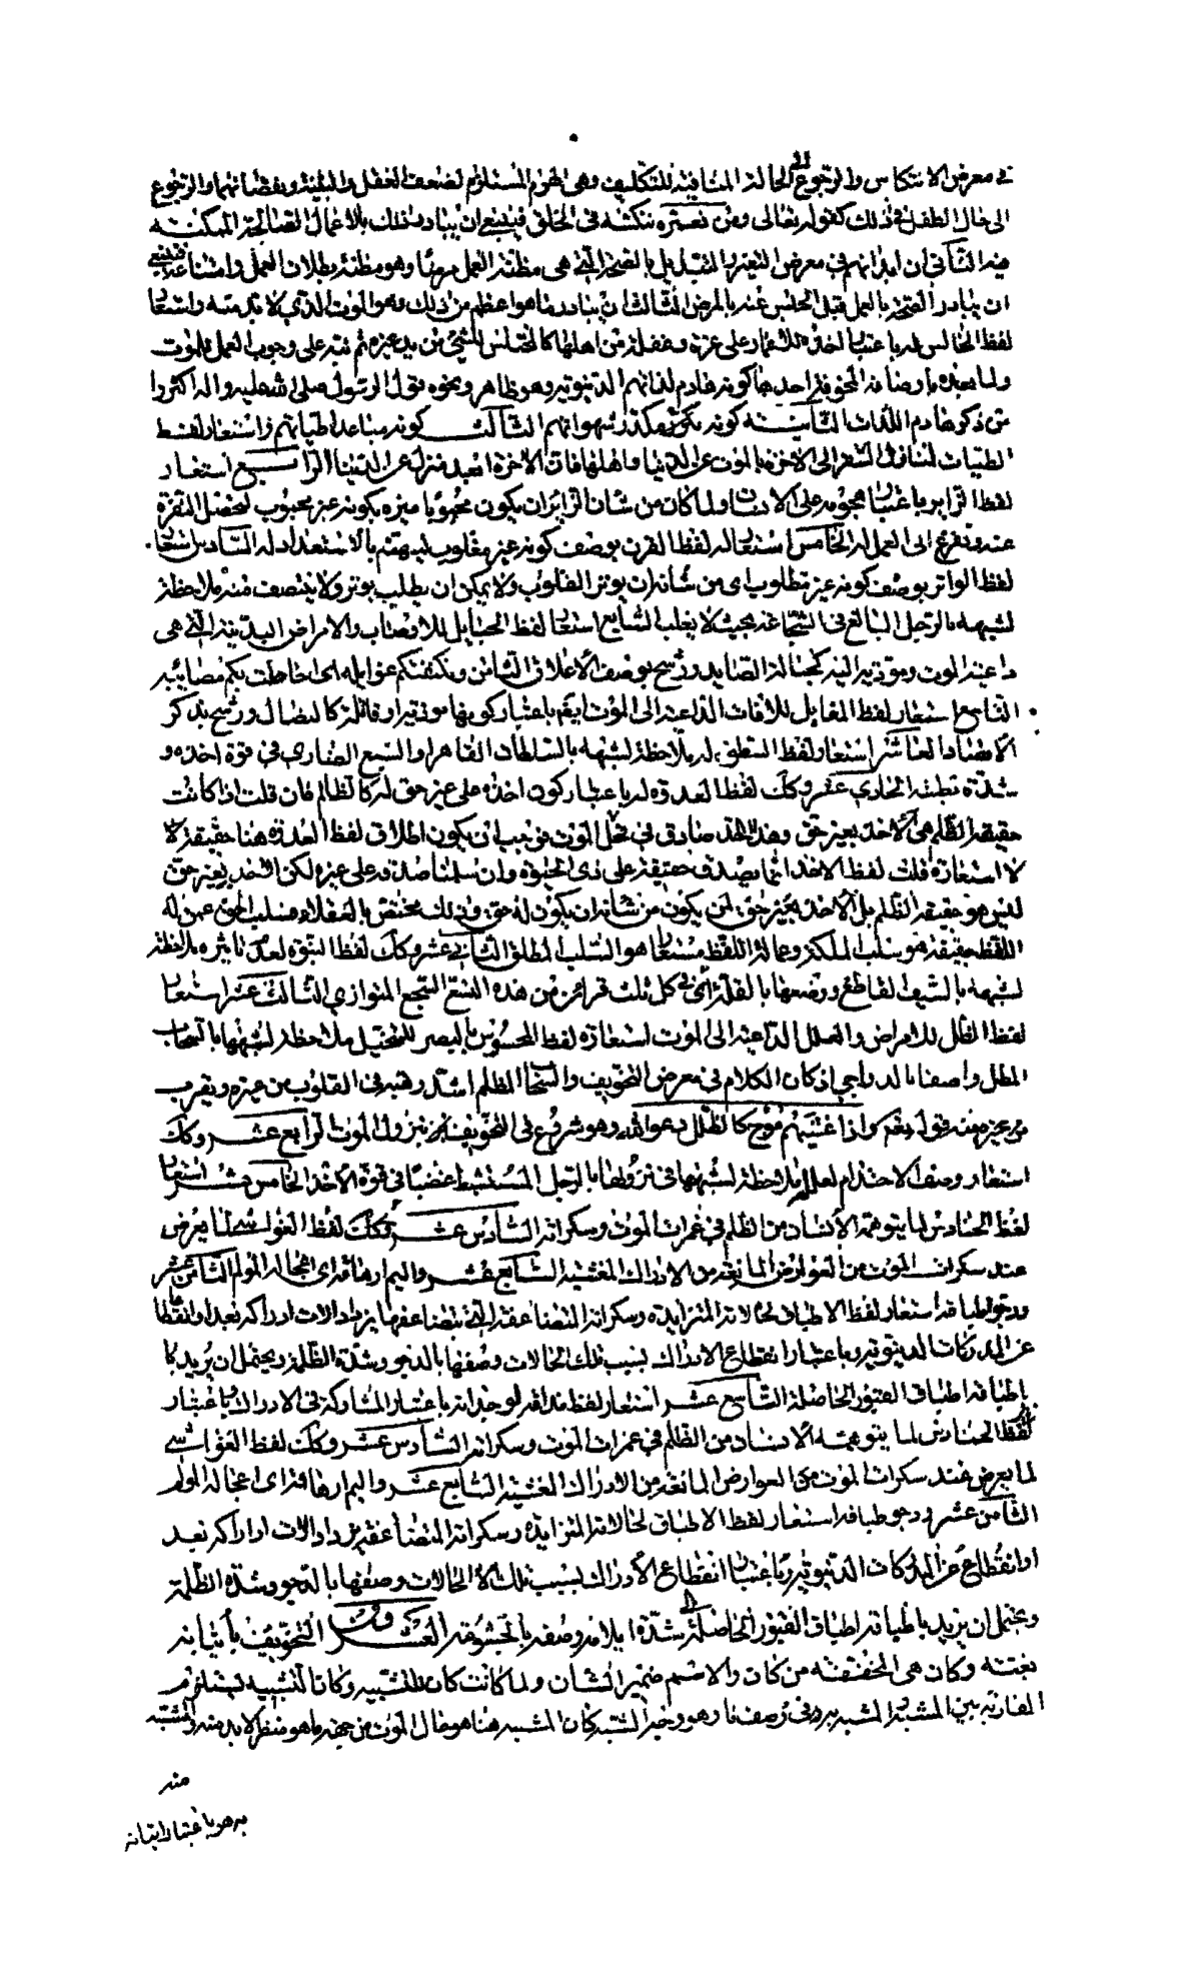 في معرض الانتكاس والرجوع الى الحالة المنافية للتكليف وهي الهرم المستلزم لضعف العقل والبنية ونقصانهما والرجوع
الى حال الطفل في ذلك كقوله تعالى ومن نعمره ننكسه في الخلق فينبغي ان يبادر ذلك بالاعمال الصالحة الممكنة
فيه الثاني ان ابدانهم في معرض التغير والتبديل بالصحة التي هي مظنة العمل مرضا وهو مظنة بطلان العمل وامتناعه فينبغي
ان يبادر الصحة بالعمل قبل الحبس عنه بالمرض الثالث ان يبادر ما هو اعظم من ذلك وهو الموت الذي لا بد منه واستعار
لفظ الخالس له باعتبار اخذه للاعمار على غرة وغفلة من اهلها كالمختلس للشيء من يد غيره ثم نبه على وجوب العمل للموت
ولما بعده باوصافه المخوفة احدها كونه هادم لذاتهم الدنيوية وهو ظاهر ونحوه قول الرسول صلى الله عليه واله اكثروا
من ذكر هادم اللذات الثانية كونه مكدر شهواتهم الثالث كونه مباعد طياتهم واستعار لفظ
الطيات لمنازل السفر الى الاخرة بالموت عن الدنيا واهلها فان الاخرة ابعد منزل عن الدنيا الرابع استعار
لفظ الزاير باعتبار هجومه على الانسان ولما كان من شان الزاير ان يكون محبوبا ميزه بكونه غير محبوب لتحصل النفرة
عنه ويفزع الى العمل له الخامس استعار له لفظ القرن بوصف كونه غير مغلوب ليهتم بالاستعداد له السادس استعار
لفظ الواتر بوصف كونه غير مطلوب اى من شانه ان يوتر القلوب ولا يمكن ان يطلب بوتر ولا ينتصف منه ملاحظة
لشبهه بالرجل البالغ في الشجاعة بحيث لا يغلب السابع استعار لفظ الحبايل للاوصاب والامراض البدنية التي هي
داعية الموت ومؤدية اليه كحبالة الصايد ورشح بوصف الاعلاق الثامن وتكنفتكم غوايله اى احاطت بكم مصائبه
التاسع استعار لفظ المعابل للافات الداعية الى الموت ايضا باعتبار كونها موذية او قاتلة كالنصال ورشح بذكر
الاقصاد العاشر استعار لفظ السطوة له ملاحظة لشبهه بالسلطان القاهر او السبع الضاري في قوة اخذه و
شدة بطشه الحادي عشر وكذلك لفظ العدوة له باعتبار كون اخذه على غير حق له كالظالم فان قلت اذا كانت
حقيقة الظلم هي الاخذ بغير حق وهذا الحد صادق في محل الموت فوجب ان يكون اطلاق لفظ العدوة هنا حقيقة لا
لا استعارة قلت لفظ الاخذ انما يصدق حقيقة على ذي الحيوة وان سلمنا صدقه على غيره لكن الاخذ بغير حق
ليس هو حقيقة الظلم بل الاخذ بغير حق لمن يكون من شانه ان يكون له حق وذلك مختص بالعقلاء فسلب الحق عمن له
اللفظ حقيقة هو سلب الملكة وعمالة اللفظ مستعار هو السلب المطلق الثاني عشر وكذلك لفظ النبوة لعدم تاثيره ملاحظة
لشبهه بالسيف القاطع ووصفها بالقلة في كل ثلث قرائن من هذه السجع المتوازي الثالث عشر استعار
لفظ الظلل للامراض والعلل الداعية الى الموت استعارة لفظ المحسوس بالبصر للمتخيل ملاحظة لشبهها بالسحاب
المظل واصفا بالدواجي اذ كان الكلام في معرض التخويف والسحاب المظلم اشد رهبة في القلوب من غيره ويقرب
من غيره منه قوله تعالى واذا غشيهم موج كالظلل دعوا الله وهو شروع في التخويف بنزول الموت الرابع عشر وكذلك
استعار وصف الاحتدام لعلله ملاحظة لشبهها في نزولها بالرجل المستشيط غضبا في قوة الاخذ الخامس عشر استعار
لفظ الحنادس لما يتوهمه الانسان من الظلم في غمرات الموت وسكراته السادس عشر وكذلك لفظ الغواشي لما يعرض
عند سكرات الموت من العوارض المانعة من الادراك المغشية السابع عشر واليم ارهاقه اى اعجاله المولم الثامن عشر
ودجو اطباقه استعار لفظ الاطباق لحالاته المتزايدة وسكراته المتضاعفة التي بتضاعفها يزداد الات ادراكه بعدا وانقطاعا
عن المدركات الدنيوية وباعتبار انقطاع الادراك بسبب تلك الحالات وصفها بالدجو وشدة الظلمة ويحتمل ان يريد
باطباقه اطباق القبور الحاصلة التاسع عشر استعار لفظ مذاقه لوجدانه باعتبار المشاركة في الادراك باعتبار
لفظ الحنادس لما يتوهمه الانسان من الظلم في غمرات الموت وسكراته السادس عشر وكذلك لفظ الغواشي
لما يعرض عند سكرات الموت من العوارض المانعة من الادراك المغشية السابع عشر واليم ارهاقه اى اعجاله المولم
الثامن عشر ودجو اطباقه استعار لفظ الاطباق لحالاته المتزايدة وسكراته المتضاعفة يزداد الات ادراكه بعد
او انقطاع عن المدركات الدنيوية وباعتبار انقطاع الادراك بسبب تلك الحالات وصفها بالدجو وشدة الظلمة
ويحتمل ان يريد باطباقه اطباق القبور الحاصلة شدة ايلامه وصفه بالجشوبة العشرون التخويف باتيانه
بغتة وكان هي المخففة من كان والاسم ضمير الشان ولما كانت كان للتشبيه وكان التشبيه يستلزم
المقارنة بين المشبه والمشبه به في وصف ما وهو وجه الشبه كان المشبه هنا هو حال الموت من جهة ما هو منتظر لا بد منه والمشبه
منه
به هو باعتبار اتيانه